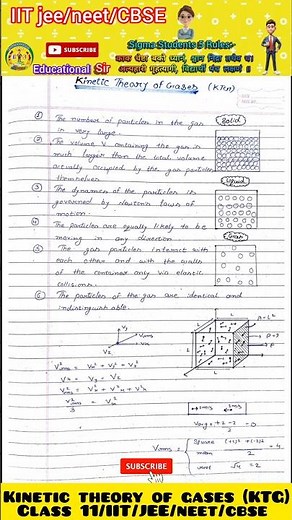 IIT jee/neet/CBSE
SUBSCRIBE
Educational Sir
Sigma Students 5 Rules:-
काक चेष्टा बको ध्यानं, श्वान निद्रा तथैव च।
अल्पहारी गृहत्यागी, विद्यार्थी पंच लक्षणं॥
Kinetic Theory of Gases (KTG)
① The number of particles in the gas
is very large.
② The volume V containing the gas is
much larger than the total volume
actually occupied by the gas particles
themselves.
③ The dynamics of the particles is
governed by Newton's laws of
motion.
④ The particles are equally likely to be
moving in any direction.
⑤ The gas particles interact with
each other and with the walls
of the container only via elastic
collisions.
⑥ The particles of the gas are identical and
indistinguishable.
Solid
Liquid
Gas
Vy
Vrms
Vx
Vz
L
L
A = L²
V²rms = Vx² + Vy² + Vz²
Vx = Vy = Vz
V²rms = Vx² + Vx² + Vx²
V²rms/3 = Vx²
Vrms =
Square
mean
root √4 = 2
SUBSCRIBE
KINETIC THEORY OF GASES (KTG)
CLASS 11/IIT/JEE/NEET/CBSE